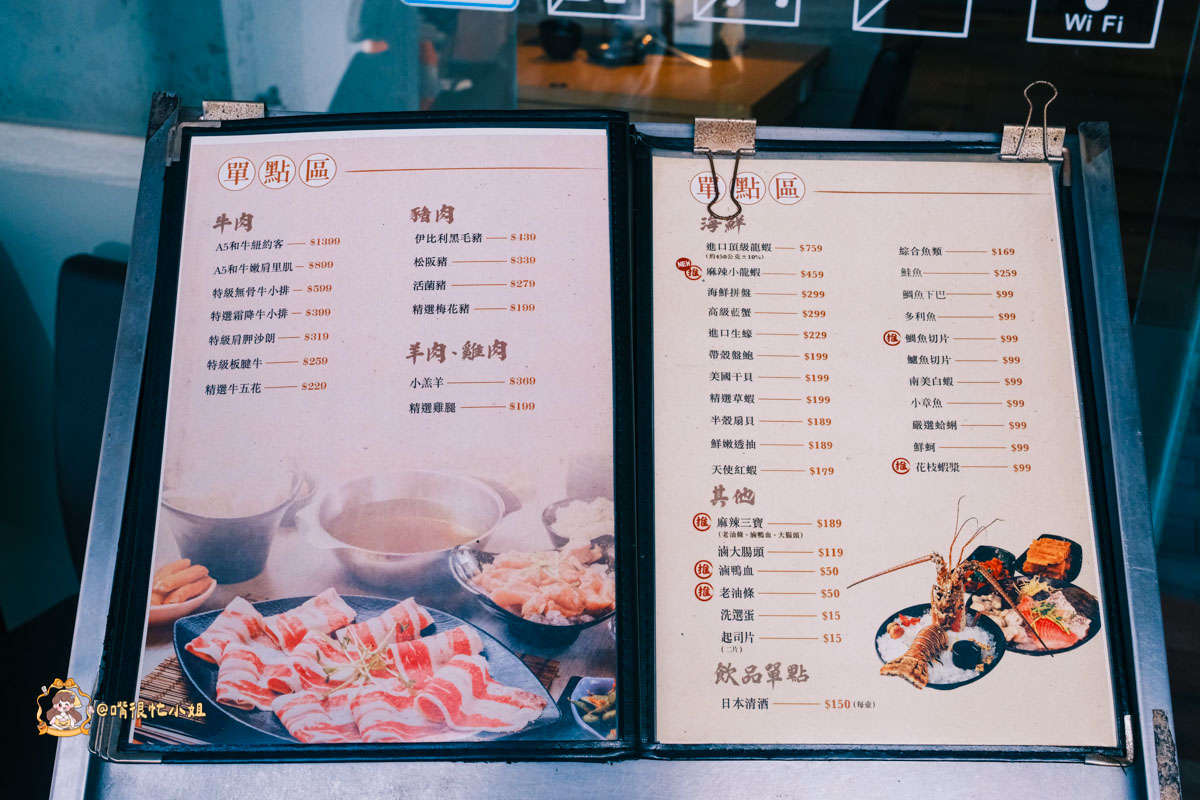 Wi Fi
單點區
牛肉
A5和牛紐約客 $1399
A5和牛嫩肩里肌 $899
特級無骨牛小排 $599
特選霜降牛小排 $399
特級肩胛沙朗 $319
特級板腱牛 $259
精選牛五花 $229
豬肉
伊比利黑毛豬 $439
松阪豬 $339
活菌豬 $279
精選梅花豬 $199
羊肉、雞肉
小羔羊 $369
精選雞腿 $199
單點區
海鮮
進口頂級龍蝦 $759
(約450公克±10%)
NEW 推 麻辣小龍蝦 $459
海鮮拼盤 $299
高級藍蟹 $299
進口生蠔 $229
帶殼盤鮑 $199
美國干貝 $199
精選草蝦 $199
半殼扇貝 $189
鮮嫩透抽 $189
天使紅蝦 $179
綜合魚類 $169
鮭魚 $259
鯛魚下巴 $99
多利魚 $99
推 鯛魚切片 $99
鱸魚切片 $99
南美白蝦 $99
小章魚 $99
嚴選蛤蜊 $99
鮮蚵 $99
推 花枝蝦漿 $99
其他
推 麻辣三寶 $189
(老油條、滷鴨血、大腸頭)
滷大腸頭 $119
推 滷鴨血 $50
推 老油條 $50
洗選蛋 $15
起司片 $15
(二片)
飲品單點
日本清酒 $150 (每壺)
@嘴很忙小姐